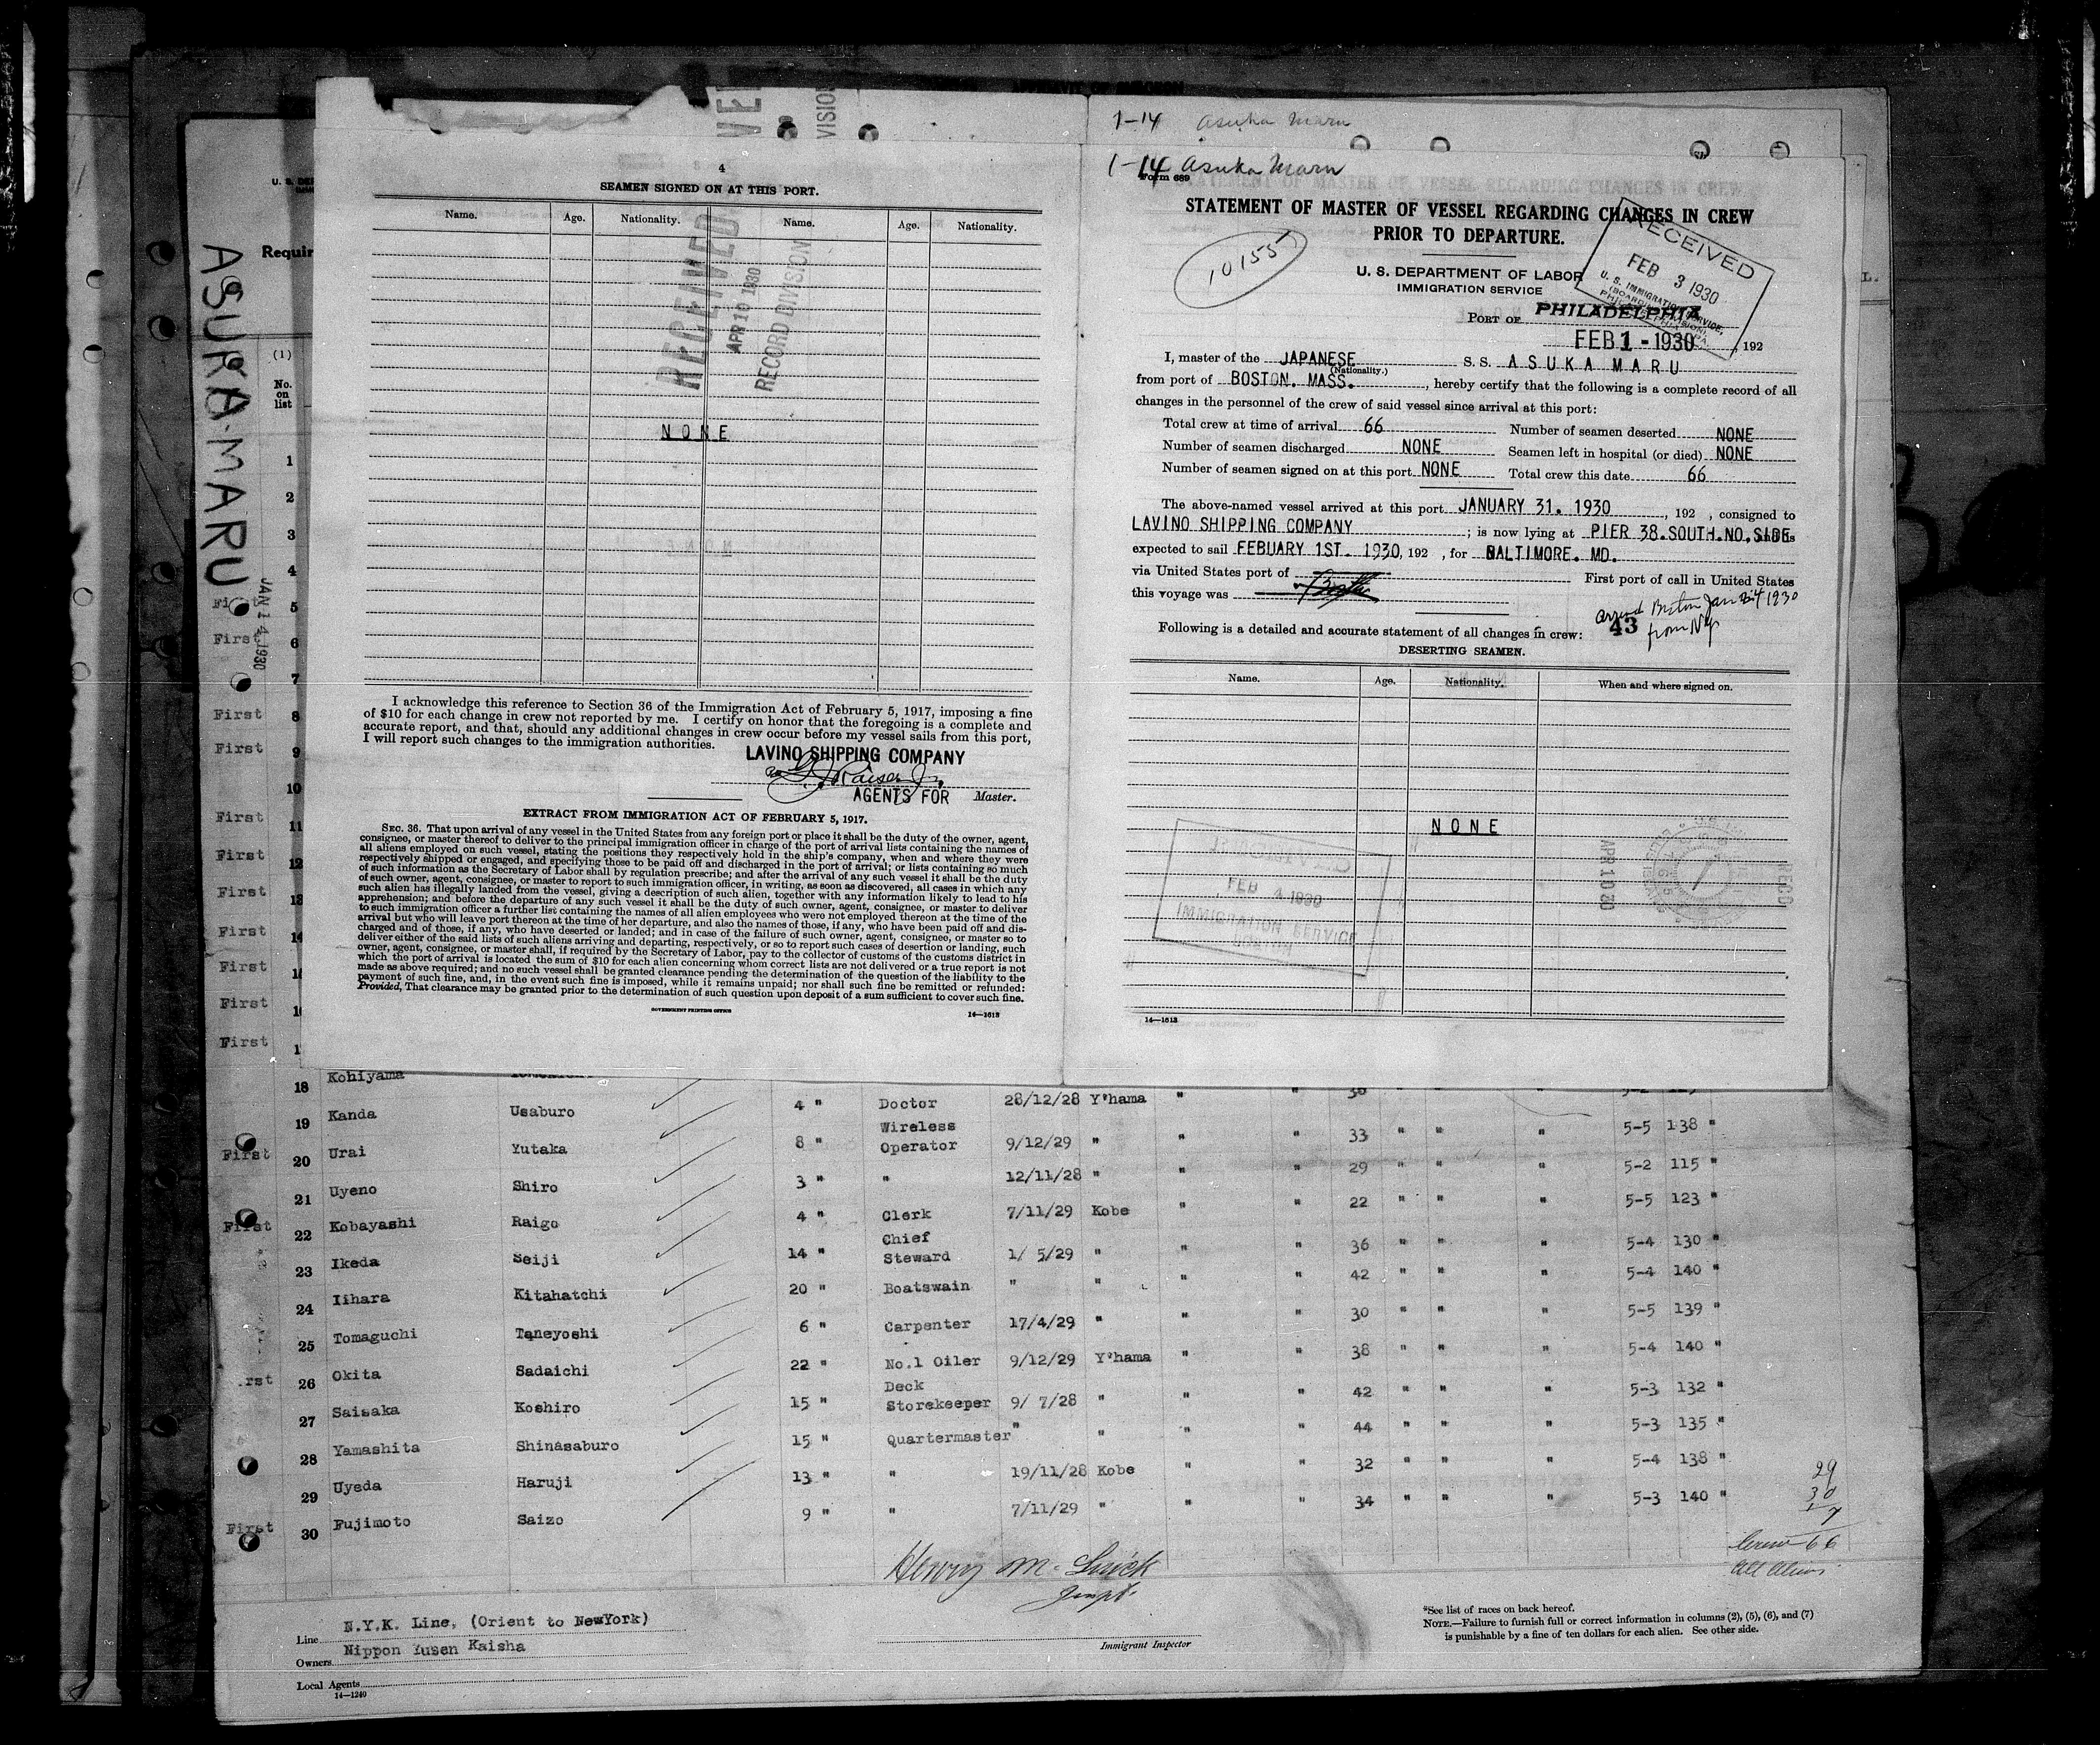 4
SEAMEN SIGNED ON AT THIS PORT.
Name. Age. Nationality. Name. Age. Nationality.
RECEIVED
APR 10 1930
RECORD DIVISION
NONE
I acknowledge this reference to Section 36 of the Immigration Act of February 5, 1917, imposing a fine
of $10 for each change in crew not reported by me. I certify on honor that the foregoing is a complete and
accurate report, and that, should any additional changes in crew occur before my vessel sails from this port,
I will report such changes to the immigration authorities.
LAVINO SHIPPING COMPANY
AGENTS FOR Master.
EXTRACT FROM IMMIGRATION ACT OF FEBRUARY 5, 1917.
SEC. 36. That upon arrival of any vessel in the United States from any foreign port or place it shall be the duty of the owner, agent,
consignee, or master thereof to deliver to the principal immigration officer in charge of the port of arrival lists containing the names of
all aliens employed on such vessel, stating the positions they respectively hold in the ship's company, when and where they were
respectively shipped or engaged, and specifying those to be paid off and discharged in the port of arrival; or lists containing so much
of such information as the Secretary of Labor shall by regulation prescribe; and after the arrival of any such vessel it shall be the duty
of such owner, agent, consignee, or master to report to such immigration officer, in writing, as soon as discovered, all cases in which any
such alien has illegally landed from the vessel, giving a description of such alien, together with any information likely to lead to his
apprehension; and before the departure of any such vessel it shall be the duty of such owner, agent, consignee, or master to deliver
to such immigration officer a further list containing the names of all alien employees who were not employed thereon at the time of the
arrival but who will leave port thereon at the time of her departure, and also the names of those, if any, who have been paid off and dis-
charged and of those, if any, who have deserted or landed; and in case of the failure of such owner, agent, consignee, or master so to
deliver either of the said lists of such aliens arriving and departing, respectively, or so to report such cases of desertion or landing, such
owner, agent, consignee, or master shall, if required by the Secretary of Labor, pay to the collector of customs of the customs district in
which the port of arrival is located the sum of $10 for each alien concerning whom correct lists are not delivered or a true report is not
made as above required; and no such vessel shall be granted clearance pending the determination of the question of the liability to the
payment of such fine, and, in the event such fine is imposed, while it remains unpaid; nor shall such fine be remitted or refunded:
Provided, That clearance may be granted prior to the determination of such question upon deposit of a sum sufficient to cover such fine.
GOVERNMENT PRINTING OFFICE 14—1613
1-14 Asuka Maru
1-14 Asuka Maru
Form 689
STATEMENT OF MASTER OF VESSEL REGARDING CHANGES IN CREW
PRIOR TO DEPARTURE.
101557
U. S. DEPARTMENT OF LABOR
IMMIGRATION SERVICE
RECEIVED
FEB 3 1930
U. S. IMMIGRATION SERVICE,
PORT OF PHILADELPHIA
FEB 1 - 1930, 192
I, master of the JAPANESE S. S. ASUKA MARU
(Nationality.)
from port of BOSTON. MASS., hereby certify that the following is a complete record of all
changes in the personnel of the crew of said vessel since arrival at this port:
Total crew at time of arrival 66 Number of seamen deserted NONE
Number of seamen discharged NONE Seamen left in hospital (or died) NONE
Number of seamen signed on at this port NONE Total crew this date 66
The above-named vessel arrived at this port JANUARY 31. 1930, 192 , consigned to
LAVINO SHIPPING COMPANY; is now lying at PIER 38.SOUTH.NO.SIDE
expected to sail FEBUARY 1ST. 1930, 192 , for BALTIMORE. MD.
via United States port of First port of call in United States
this voyage was
arrived Boston Jan 24 1930
from NY
Following is a detailed and accurate statement of all changes in crew: 43
DESERTING SEAMEN.
Name. Age. Nationality. When and where signed on.
NONE
FEB 4 1930
IMMIGRATION SERVICE
APR 10 30
14—1613
ASUKA-MARU
JAN 14 1930
Requir
(1)
No.
on
list
1
2
3
4
5
First 6
7
First 8
First 9
10
First 11
First 12
First 13
First 14
First
First
First
18 Kohiyama
19 Kanda Usaburo 4 " Doctor 28/12/28 Y'hama " " 36
First 20 Urai Yutaka 8 " Wireless Operator 9/12/29 " " " 33 " " " 5-5 138 "
21 Uyeno Shiro 3 " " 12/11/28 " " " 29 " " " 5-2 115 "
First 22 Kobayashi Raigo 4 " Clerk 7/11/29 Kobe " " 22 " " " 5-5 123 "
23 Ikeda Seiji 14 " Chief Steward 1/ 5/29 " " " 36 " " " 5-4 130 "
24 Iihara Kitahatchi 20 " Boatswain " " " " 42 " " " 5-4 140 "
25 Tomaguchi Taneyoshi 6 " Carpenter 17/4/29 " " " 30 " " " 5-5 139 "
26 Okita Sadaichi 22 " No.1 Oiler 9/12/29 Y'hama " " 38 " " " 5-4 140 "
27 Saisaka Koshiro 15 " Deck Storekeeper 9/ 7/28 " " " 42 " " " 5-3 132 "
28 Yamashita Shinasaburo 15 " Quartermaster " " " " 44 " " " 5-3 135 "
29 Uyeda Haruji 13 " " 19/11/28 Kobe " " 32 " " " 5-4 138 "
First 30 Fujimoto Saizo 9 " " 7/11/29 " " " 34 " " " 5-3 140 "
29
30
7
Crew 66
All Aliens
Line N.Y.K. Line, (Orient to NewYork)
Owners Nippon Yusen Kaisha
Local Agents
14—1240
Immigrant Inspector
*See list of races on back hereof.
NOTE.—Failure to furnish full or correct information in columns (2), (5), (6), and (7)
is punishable by a fine of ten dollars for each alien. See other side.